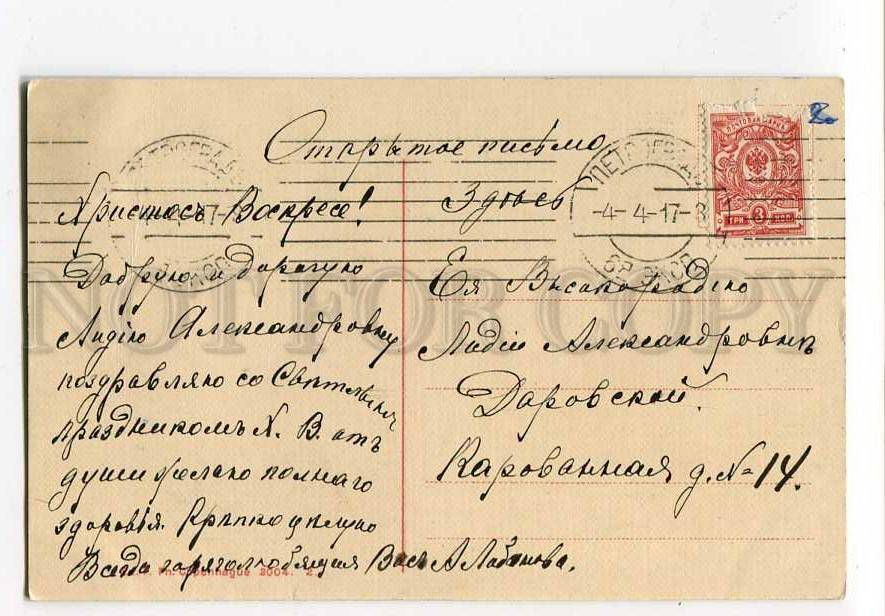 Открытое письмо
Христосъ Воскресе!
Добрую и Дорогую
Лидію Александровну
поздравляю со Свѣтлымъ
праздникомъ Х. В. отъ
души желаю полнаго
здоровія. Крѣпко цѣлую
Всегда горячо любящия Вася А Лобанова.
Здѣсь
Ея Высокородію
Лидіи Александровнѣ
Даровской.
Карованная д. № 14.
ПЕТРОГРАДЪ
-4-4-17-8
ПОЧТОВАЯ МАРКА
ТРИ 3 КОП.
Copenhague 2004.
NOT FOR COPY